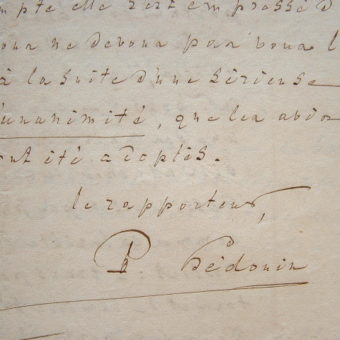 mpte elle s'est empressé d
vous ne devons pas vous l
à la suite d'une sérieuse
l'unanimité, que les avis
ont été adoptés.
le rapporteur,
P. Hédouin